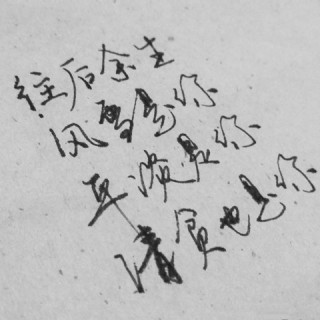 往后余生
风雪是你
平淡是你
清贫也是你